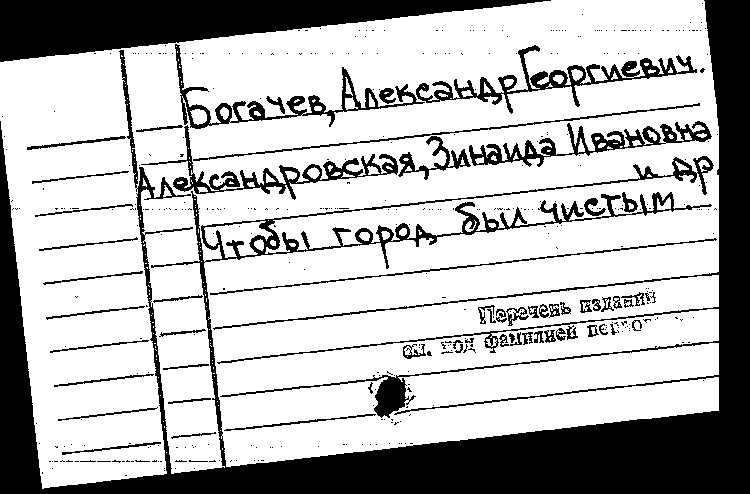 Богачев, Александр Георгиевич.
Александровская, Зинаида Ивановна
и др.
Чтобы город был чистым.
Перечень изданий
см. под фамилией